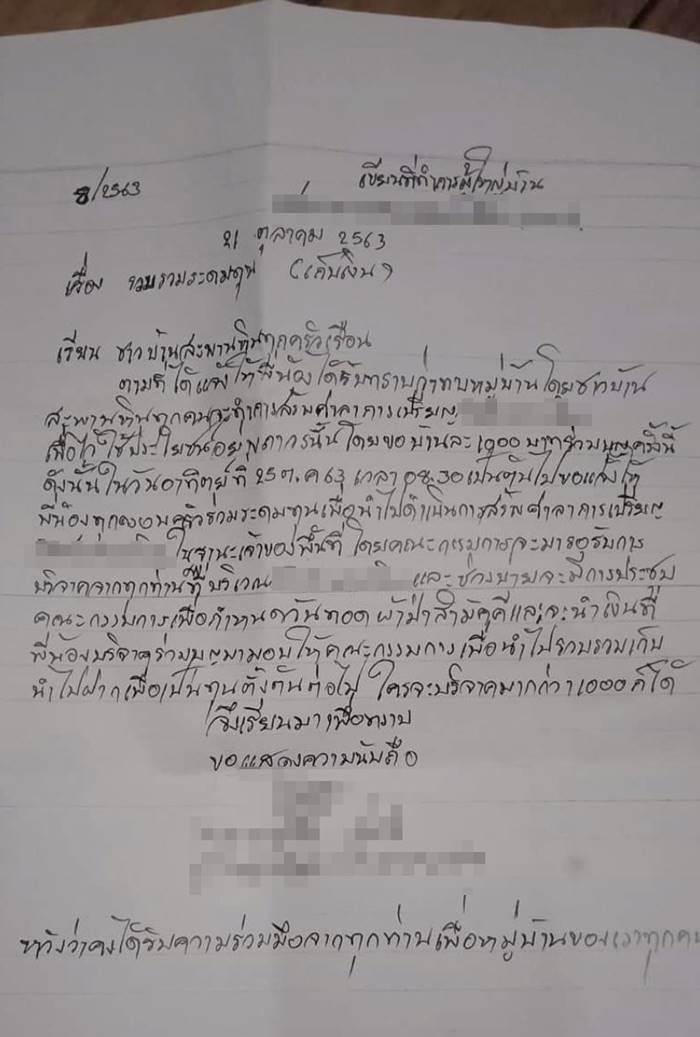 8/2563
เขียนที่ทำการผู้ใหญ่บ้าน
21 ตุลาคม 2563
เรื่อง รวบรวมระดมทุน (เก็บเงิน)
เรียน ชาวบ้านสะพานหินทุกครัวเรือน
ตามที่ได้แจ้งให้พี่น้องได้รับทราบว่าทางหมู่บ้านโดยชาวบ้าน
สะพานหินทุกคนจะทำการสร้างศาลาการเปรียญ
เพื่อไว้ใช้ประโยชน์ โดยขอบ้านละ 1000 บาทร่วมบุญครั้งนี้
ดังนั้นในวันอาทิตย์ที่ 25 ต.ค 63 เวลา 08.30 เป็นต้นไปขอแจ้งให้
พี่น้องทุกครอบครัวร่วมระดมทุนเพื่อนำไปดำเนินการสร้างศาลาการเปรียญ
ในฐานะเจ้าของพื้นที่ โดยคณะกรรมการจะมารอรับการ
บริจาคจากทุกท่านที่บริเวณ และช่วงบ่ายจะมีการประชุม
คณะกรรมการเพื่อกำหนดวันทอดผ้าป่าสามัคคีและจะนำเงินที่
พี่น้องบริจาคร่วมบุญมามอบให้คณะกรรมการเพื่อนำไปรวบรวมเก็บ
นำไปฝากเพื่อเป็นทุนตั้งต้นต่อไป ใครจะบริจาคมากกว่า 1000 ก็ได้
จึงเรียนมาเพื่อทราบ
ขอแสดงความนับถือ
หวังว่าคงได้รับความร่วมมือจากทุกท่านเพื่อหมู่บ้านของเราทุกคน